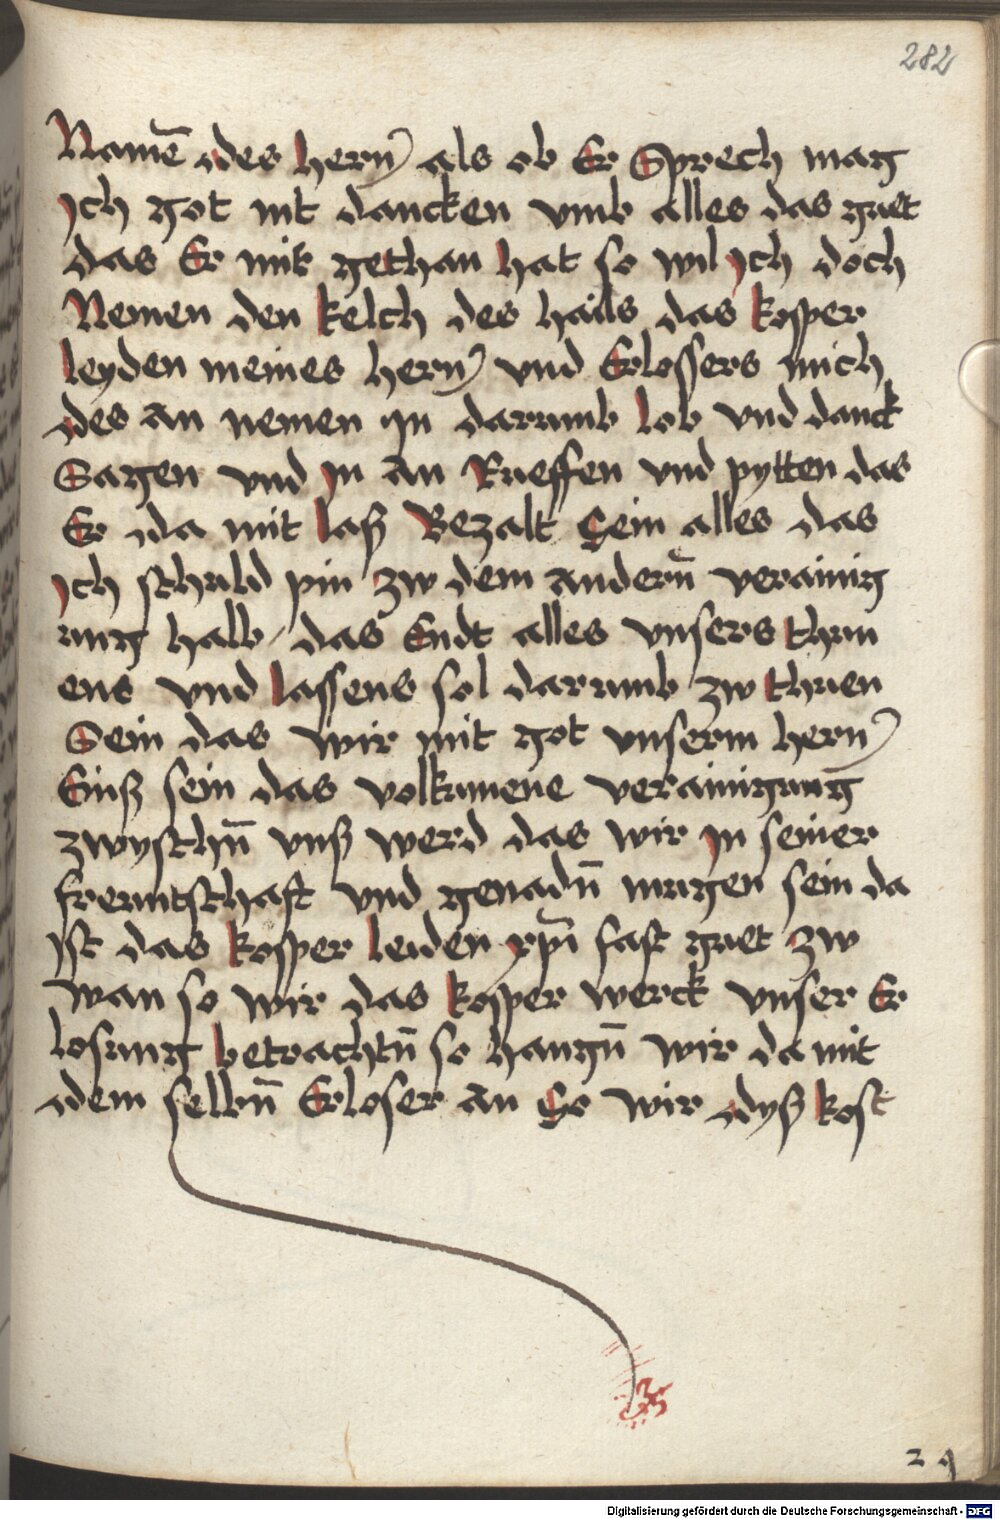 282
Namē des hern als ob Er Sprech mag
ych got nit dancken vmb alles das guet
das Er mir gethan hat so wil ych doch
Nemen den kelch des hails das kosper
leyden meines hern vnd Erlossers mich
des an nemen yn darumb lob vnd danck
Sagen vnd yn an Rueffen vnd pytten das
Er da mit laß Bezalt Sein alles das
ych schuld pin zw dem andern̄ verainig
ung halb / das Endt alles vnsers thun
ens vnd lassens sol darumb zw thuen
Sein das wir mit got vnserm hern
Einß sein das volkumene verainigung
zwyschn̄ vnß werd das wir yn seiner
freuntschaft vnd genadn̄ mugen sein da
yst das kosper leiden xp̄i fast guet zw
wan so wir das kosper werck vnser Er
losung betrachtn̄ so hangn̄ wir da mit
dem selbn̄ Erloser an So wir dyß kost